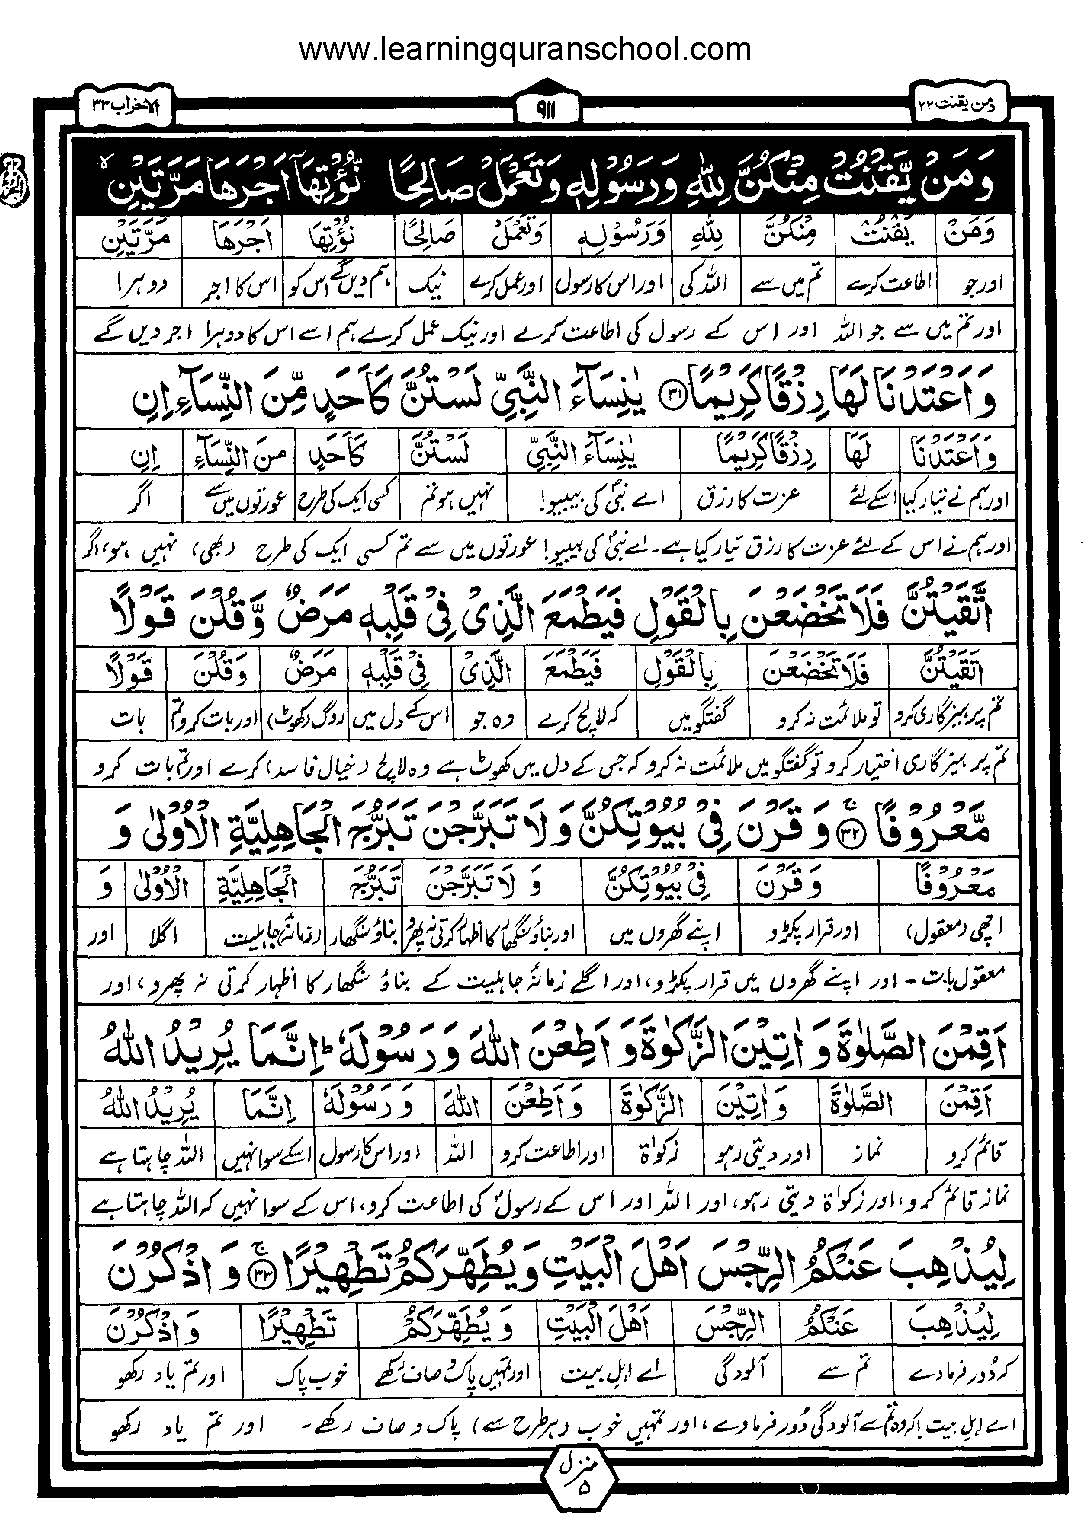 www.learningquranschool.com
الاحزاب ۳۳
۹۱۱
ومن یقنت ۲۲
وَمَنْ يَّقْنُتْ مِنْكُنَّ لِلّٰهِ وَرَسُوْلِهٖ وَتَعْمَلْ صَالِحًا نُّؤْتِهَاۤ اَجْرَهَا مَرَّتَيْنِ ۙ
وَمَنْ يَّقْنُتْ مِنْكُنَّ لِلّٰهِ وَرَسُوْلِهٖ وَتَعْمَلْ صَالِحًا نُّؤْتِهَا اَجْرَهَا مَرَّتَيْنِ
اور جو اطاعت کرے تم میں سے اللہ کی اور اس کا رسول اور عمل کرے نیک ہم دیں گے اس کو اس کا اجر دوہرا
اور تم میں سے جو اللہ اور اس کے رسول کی اطاعت کرے اور نیک عمل کرے ہم اسے اس کا دوہرا اجر دیں گے
وَاَعْتَدْنَا لَهَا رِزْقًا كَرِيْمًا ﴿۳۱﴾ يٰنِسَآءَ النَّبِيِّ لَسْتُنَّ كَاَحَدٍ مِّنَ النِّسَآءِ اِنِ
وَاَعْتَدْنَا لَهَا رِزْقًا كَرِيْمًا يٰنِسَآءَ النَّبِيِّ لَسْتُنَّ كَاَحَدٍ مِنَ النِّسَآءِ اِنِ
اور ہم نے تیار کیا اسکے لئے عزت کا رزق اے نبیؐ کی بیبیو! نہیں ہو تم کسی ایک کی طرح عورتوں میں سے اگر
اور ہم نے اس کے لئے عزت کا رزق تیار کیا ہے۔ اے نبیؐ کی بیبیو! عورتوں میں سے تم کسی ایک کی طرح (بھی) نہیں ہو، اگر
اتَّقَيْتُنَّ فَلَا تَخْضَعْنَ بِالْقَوْلِ فَيَطْمَعَ الَّذِيْ فِيْ قَلْبِهٖ مَرَضٌ وَّقُلْنَ قَوْلًا
اتَّقَيْتُنَّ فَلَا تَخْضَعْنَ بِالْقَوْلِ فَيَطْمَعَ الَّذِيْ فِيْ قَلْبِهٖ مَرَضٌ وَقُلْنَ قَوْلًا
تم پرہیزگاری کرو تو ملائمت نہ کرو گفتگو میں کہ لالچ کرے وہ جو اس کے دل میں روگ (کھوٹ) اور بات کرو تم بات
تم پرہیزگاری اختیار کرو تو گفتگو میں ملائمت نہ کرو کہ جس کے دل میں کھوٹ ہے وہ لالچ (خیال فاسد) کرے اور تم بات کرو
مَّعْرُوْفًا ﴿۳۲﴾ ۚ وَقَرْنَ فِيْ بُيُوْتِكُنَّ وَلَا تَبَرَّجْنَ تَبَرُّجَ الْجَاهِلِيَّةِ الْاُوْلٰى وَ
مَعْرُوْفًا وَقَرْنَ فِيْ بُيُوْتِكُنَّ وَلَا تَبَرَّجْنَ تَبَرُّجَ الْجَاهِلِيَّةِ الْاُوْلٰى وَ
اچھی (معقول) اور قرار پکڑو اپنے گھروں میں اور بناؤ سنگھار کا اظہار کرتی نہ پھرو بناؤ سنگھار زمانۂ جاہلیت اگلا اور
معقول بات۔ اور اپنے گھروں میں قرار پکڑو، اور اگلے زمانۂ جاہلیت کے بناؤ سنگھار کا اظہار کرتی نہ پھرو، اور
اَقِمْنَ الصَّلٰوةَ وَاٰتِيْنَ الزَّكٰوةَ وَاَطِعْنَ اللّٰهَ وَرَسُوْلَهٗ ؕ اِنَّمَا يُرِيْدُ اللّٰهُ
اَقِمْنَ الصَّلٰوةَ وَاٰتِيْنَ الزَّكٰوةَ وَاَطِعْنَ اللّٰهَ وَرَسُوْلَهٗ اِنَّمَا يُرِيْدُ اللّٰهُ
قائم کرو نماز اور دیتی رہو زکوٰۃ اور اطاعت کرو اللہ اور اس کا رسول اسکے سوا نہیں اللہ چاہتا ہے
نماز قائم کرو، اور زکوٰۃ دیتی رہو، اور اللہ اور اس کے رسولؐ کی اطاعت کرو، اس کے سوا نہیں کہ اللہ چاہتا ہے
لِيُذْهِبَ عَنْكُمُ الرِّجْسَ اَهْلَ الْبَيْتِ وَيُطَهِّرَكُمْ تَطْهِيْرًا ﴿۳۳﴾ ۚ وَاذْكُرْنَ
لِيُذْهِبَ عَنْكُمُ الرِّجْسَ اَهْلَ الْبَيْتِ وَيُطَهِّرَكُمْ تَطْهِيْرًا وَاذْكُرْنَ
کہ دور فرمادے تم سے آلودگی اے اہل بیت اور تمہیں پاک و صاف رکھے خوب پاک اور تم یاد رکھو
اے اہل بیت! کہ وہ تم سے آلودگی دُور فرمادے، اور تمہیں خوب (ہر طرح سے) پاک و صاف رکھے۔ اور تم یاد رکھو
منزل ۵